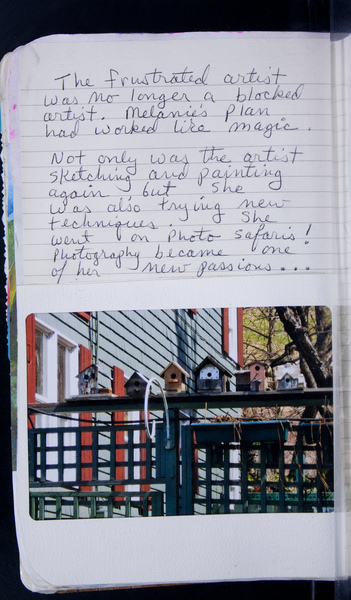 The frustrated artist
was no longer a blocked
artist. Melanie's plan
had worked like magic.
Not only was the artist
sketching and painting
again, but she
was also trying new
techniques. She
went on photo safaris!
Photography became one
of her new passions...